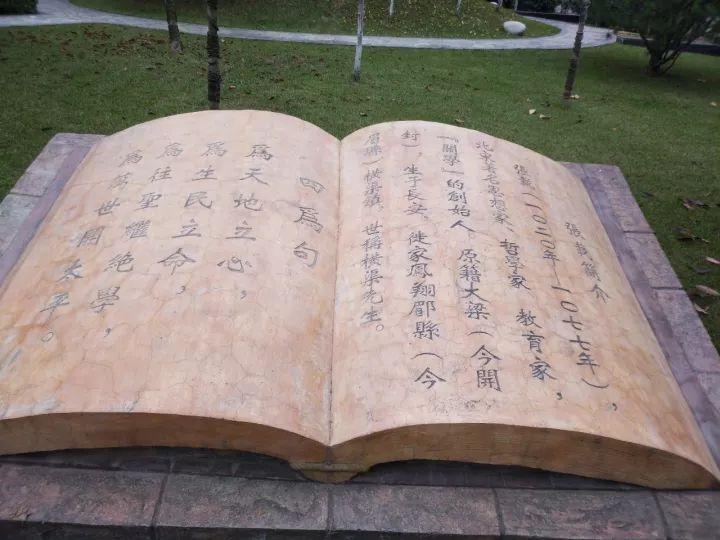 張載簡介
張載(一〇二〇年—一〇七七年),
北宋著名思想家、哲學家 教育家,
「關學」的創始人 原籍大梁(今開
封),生于長安。徙家鳳翔郿縣(今
眉縣)橫渠鎮。世稱橫渠先生。
四爲句
爲天地立心,
爲生民立命,
爲往聖繼絕學,
爲萬世開太平。